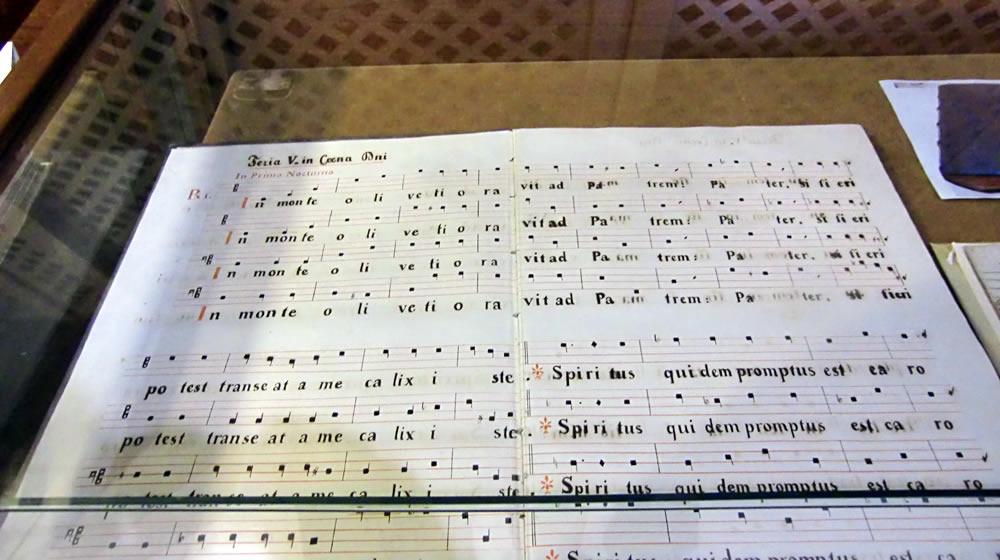 Feria V. in Cœna Dni
In Primo Nocturno
R. 1.
In mon te o li ve ti o ra vit ad Pa trem: Pa ter, si fi eri
In mon te o li ve ti o ra vit ad Pa trem: Pa ter, Si fi eri
In mon te o li ve ti o ra vit ad Pa trem: Pa ter, si fi eri
In mon te o li ve ti o ra vit ad Pa trem: Pa ter, si fieri
po test transe at a me ca lix i ste. Spi ri tus qui dem promptus est ca ro
po test transe at a me ca lix i ste. Spi ri tus qui dem promptus est, ca ro
po test tran se at a me ca lix i ste. Spi ri tus qui dem promptus est ca ro
Spi ri tus qui dem promptus est ca